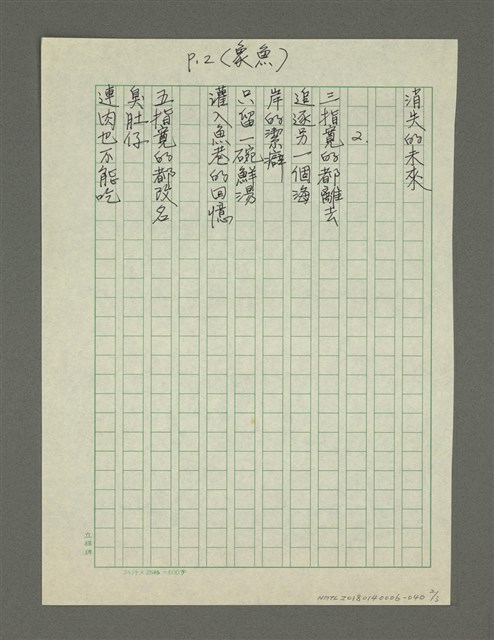 P.2（象魚）
消失的未來
2.
三指寬的都離去
追逐另一個海
岸的潔癖
只留一碗鮮湯
灌入魚老的回憶
五指寬的都改名
臭肚仔
連肉也不能吃
NMTL20180140006-040 2/3